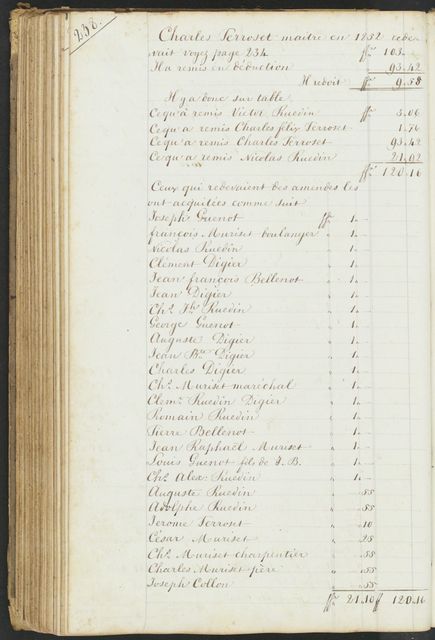 238.
Charles Perroset maitre en 1852 rede-
vait voyez page 234 ffs 103.—
Il a remis en déduction „ 93.42
Il redoit ffs 9.58
Il y a donc sur table
Ce qu'a remis Victor Ruedin ffs 5.06
Ce qu'a remis Charles félix Perroset „ 1.76
Ce qu'a remis Charles Perroset „ 93.42
Ce qu'a remis Nicolas Ruedin „ 21.02
ffs 120.16
Ceux qui redevaient des amendes les
ont acquitées comme suit
Joseph Guenot ffs 1.—
françois Muriset boulanger „ 1.—
Nicolas Ruedin „ 1.—
Clément Digier „ 1.—
Jean françois Bellenot „ 1.—
Jean Digier „ 1.—
Chs. Jh. Ruedin „ 1.—
George Guenot „ 1.—
Auguste Digier „ 1.—
Jean Bte. Digier „ 1.—
Charles Digier „ 1.—
Chs. Muriset maréchal „ 1.—
Clemt. Ruedin Digier „ 1.—
Romain Ruedin „ 1.—
Pierre Bellenot „ 1.—
Jean Raphaël Muriset „ 1.—
Louis Guenot fils de J. B. „ 1.—
Chs. Alexe. Ruedin „ 1.—
Auguste Ruedin „ .55
Adolphe Ruedin „ .55
Jerome Perroset „ .10
César Muriset „ .25
Chs. Muriset charpentier „ .55
Charles Muriset père „ .55
Joseph Collon „ .55
ffs 21.10 ff 120.16